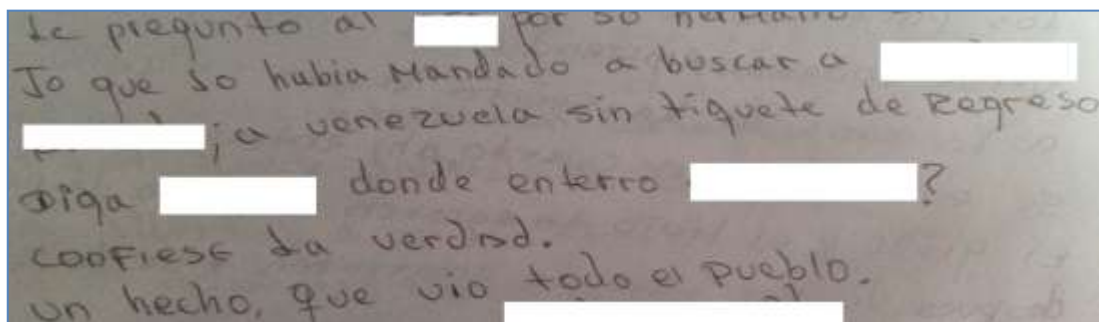 te pregunto al por so hermano
Jo que so habia Mandado a buscar a
;a venezuela sin tiquete de Regreso
Diga donde enterro ?
confiese La verdad.
un hecho, que vio todo el pueblo.